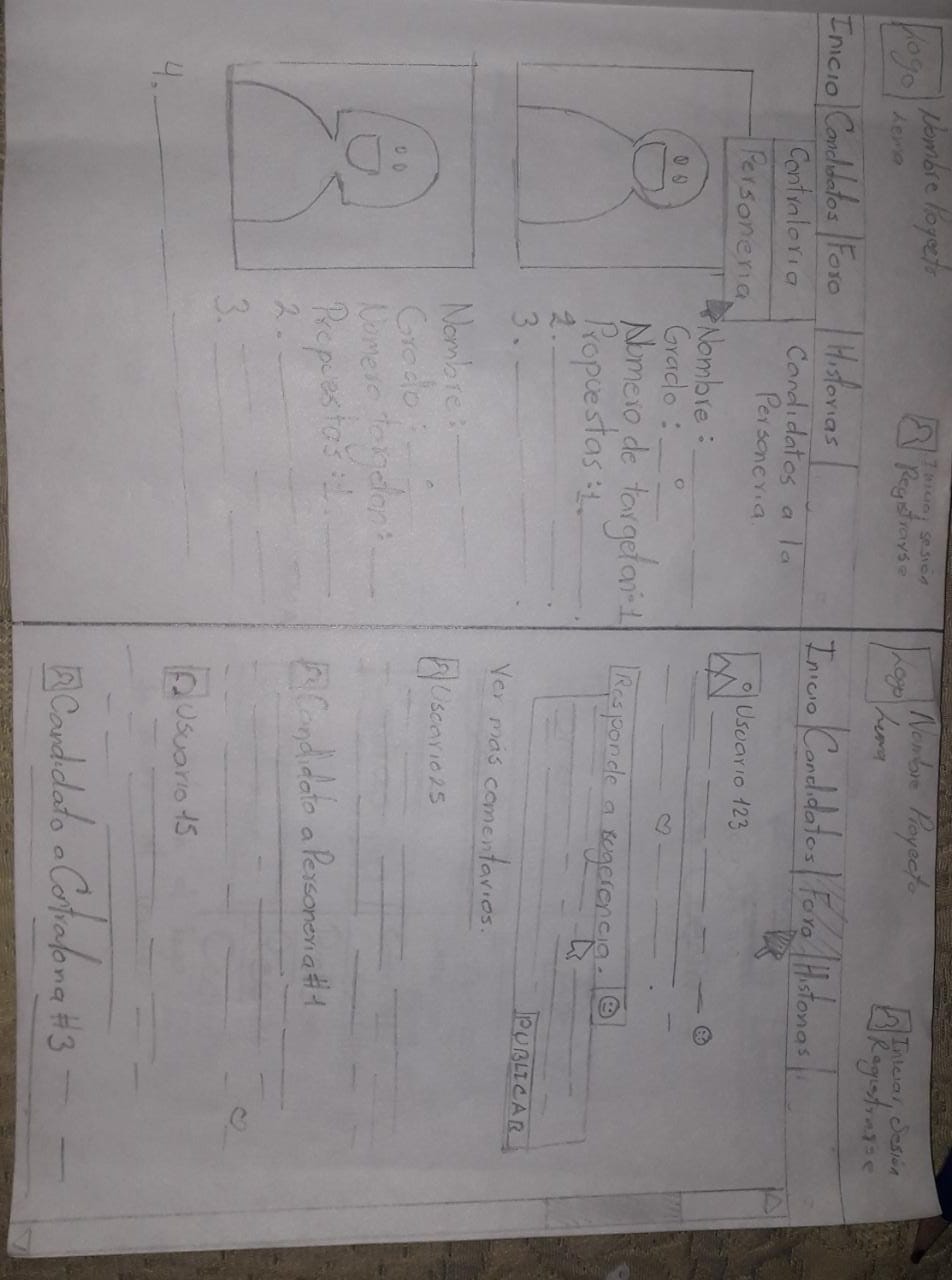 Logo
Nombre Proyecto
Lema
Iniciar sesión
Registrarse
Inicio Candidatos Foro Historias
Contraloria
Personeria
Candidatos a la
Personeria
Nombre:
Grado: °
Numero de targeton:1
Propuestas:1.
2.
3.
Nombre:
Grado: °
Numero targeton:
Propuestas:1.
2.
3.
4.
Logo
Nombre Proyecto
Lema
Iniciar Sesión
Registrarse
Inicio Candidatos Foro Historias
Usuario 123
Responde a sugerencia.
PUBLICAR
Ver más comentarios.
Usuario 25
Candidato a Personeria #1
Usuario 15
Candidato a Contraloria #3